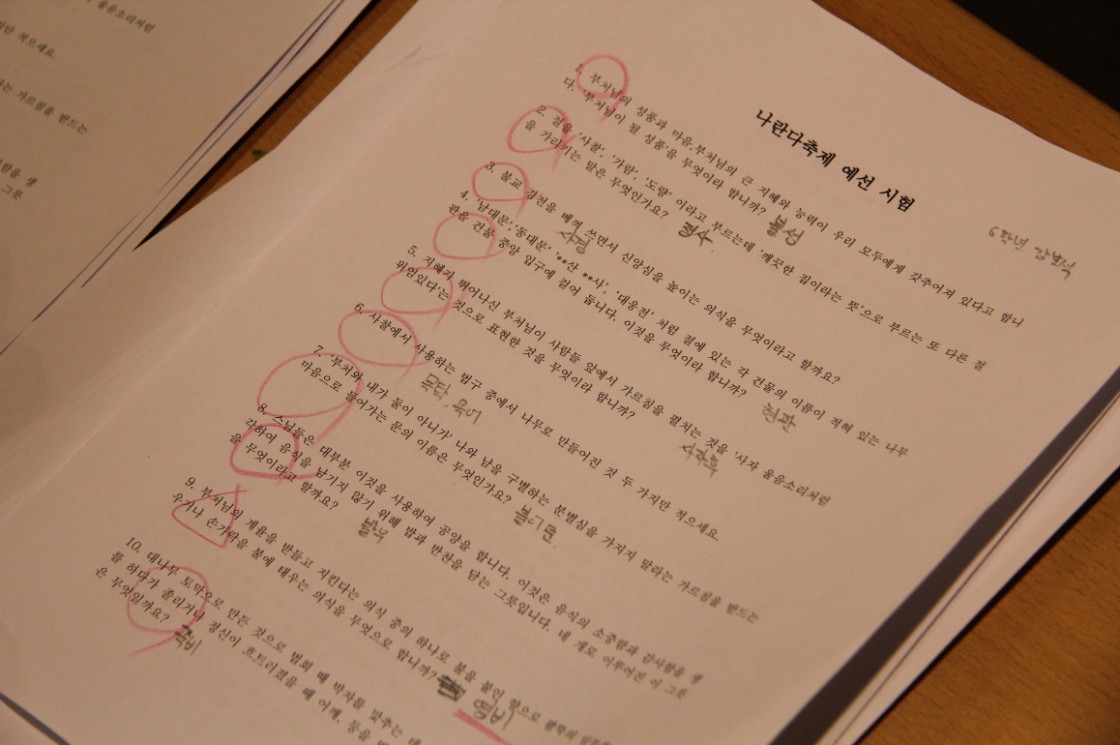 울음소리처럼
적으세요.
가르침을 받드는
그릇
나란다축제 예선 시험
6학년
1. 부처님의 성품과 마음,부처님의 큰 지혜와 능력이 우리 모두에게 갖추어져 있다고 합니
다. '부처님이 될 성품'을 무엇이라 합니까? 불성
2. 절을 '사찰', '가람', '도량' 이라고 부르는데 '깨끗한 집이라는 뜻'으로 부르는 또 다른 절
을 가리키는 말은 무엇인가요? 정사
3. 불교 경전을 베껴 쓰면서 신앙심을 높이는 의식을 무엇이라고 할까요?
사경
4. '남대문','동대문' '**산 **사', '대웅전' 처럼 절에 있는 각 건물의 이름이 적혀 있는 나무
판을 건물 중앙 입구에 걸어 둡니다. 이것을 무엇이라 합니까? 현판
5. 지혜가 뛰어나신 부처님이 사람들 앞에서 가르침을 펼치는 것을 '사자 울음소리처럼
위엄있다'는 것으로 표현한 것을 무엇이라 합니까? 사자후
6. 사찰에서 사용하는 법구 중에서 나무로 만들어진 것 두 가지만 적으세요.
목탁, 목어
7. '부처와 내가 둘이 아니가' 나와 남을 구별하는 분별심을 가지지 말라는 가르침을 받드는
마음으로 들어가는 문의 이름은 무엇인가요? 불이문
8. 스님들은 대부분 이것을 사용하여 공양을 합니다. 이것은 음식의 소중함과 감사함을 생
각하여 음식을 남기지 않기 위해 밥과 반찬을 담는 그릇입니다. 네 개로 이루어진 이 그릇
을 무엇이라고 할까요? 발우
9. 부처님의 계율을 받들고 지킨다는 의식 중의 하나로 불을 붙인 향으로 팔뚝의
우거나 손가락을 불에 태우는 의식을 무엇으로 합니까? 연비
10. 대나무 토막으로 만든 것으로 법회 때 박자를 맞추는
를 하다가 졸리거나 정신이 흐트러졌을 때 어깨, 등을
은 무엇일까요? 죽비